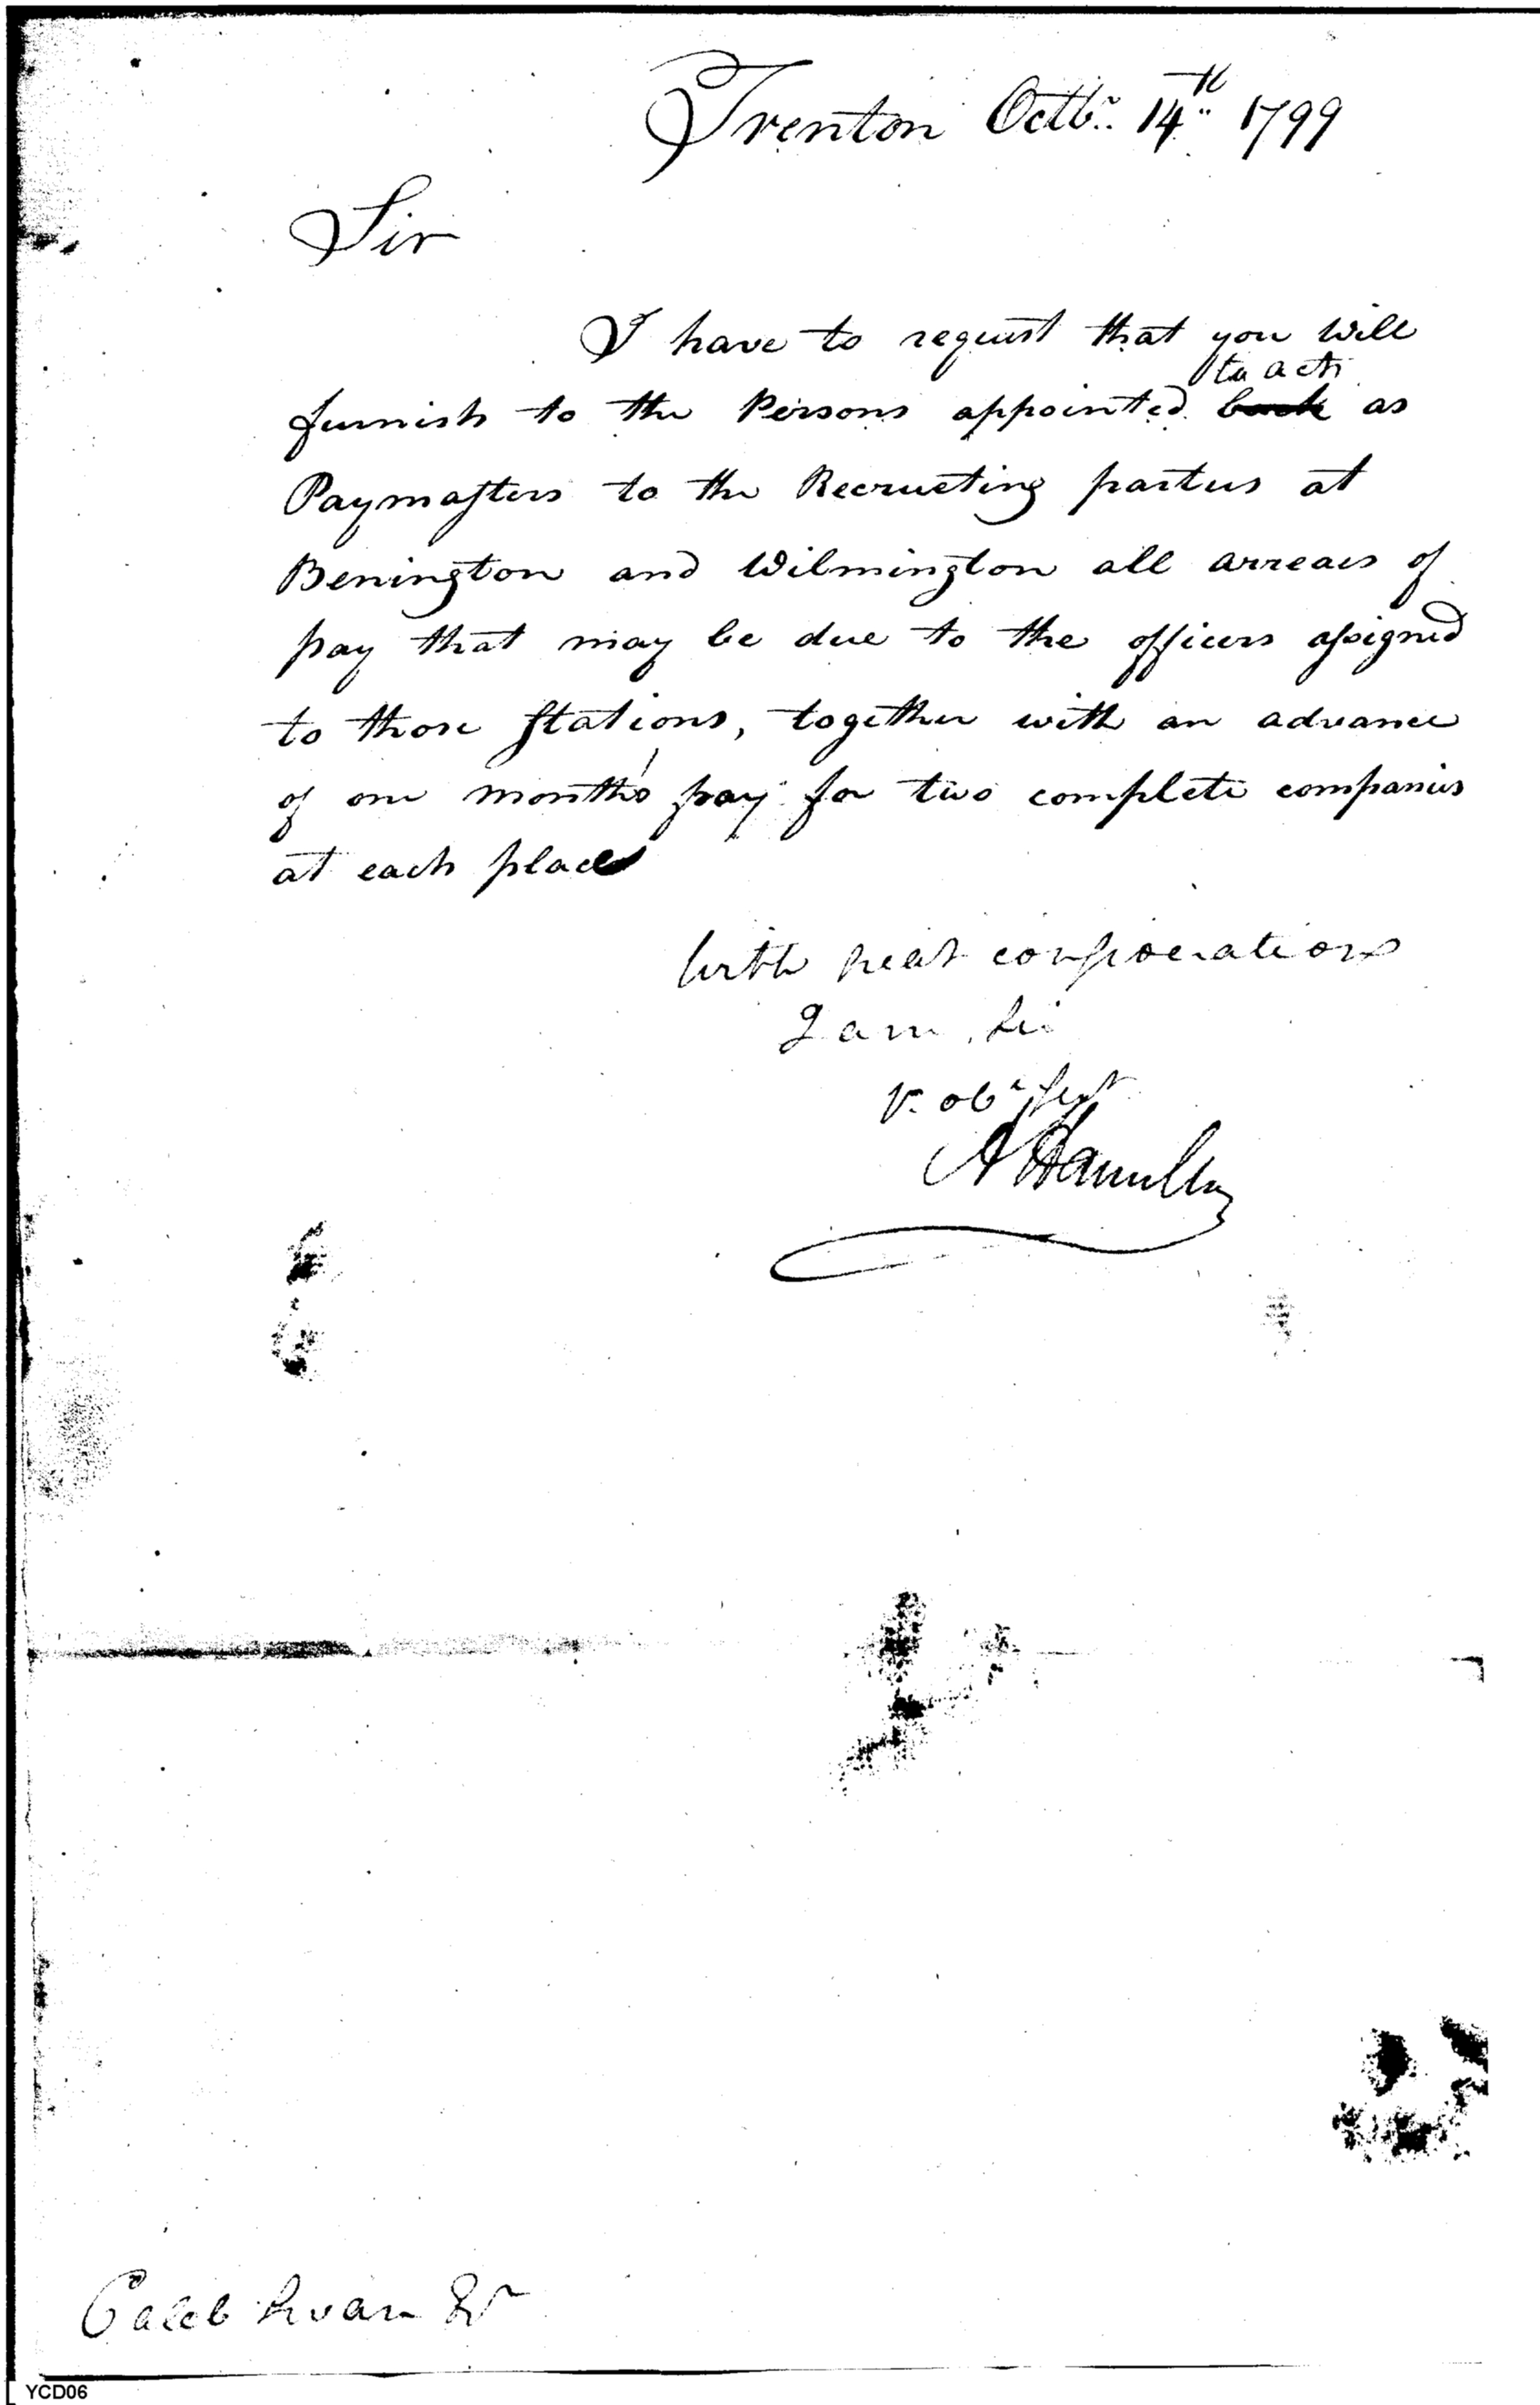 Trenton Octbr. 14th 1799
Sir
I have to request that you will
to act
furnish to the Persons appointed as
Paymasters to the Recruiting parties at
Benington and Wilmington all arrears of
pay that may be due to the officers assigned
to those Stations, together with an advance
of one month's pay for two complete companies
at each place
With great consideration
I am, Sir
Yr. obt sert
A Hamilton
Caleb Swan Esr
YCD06